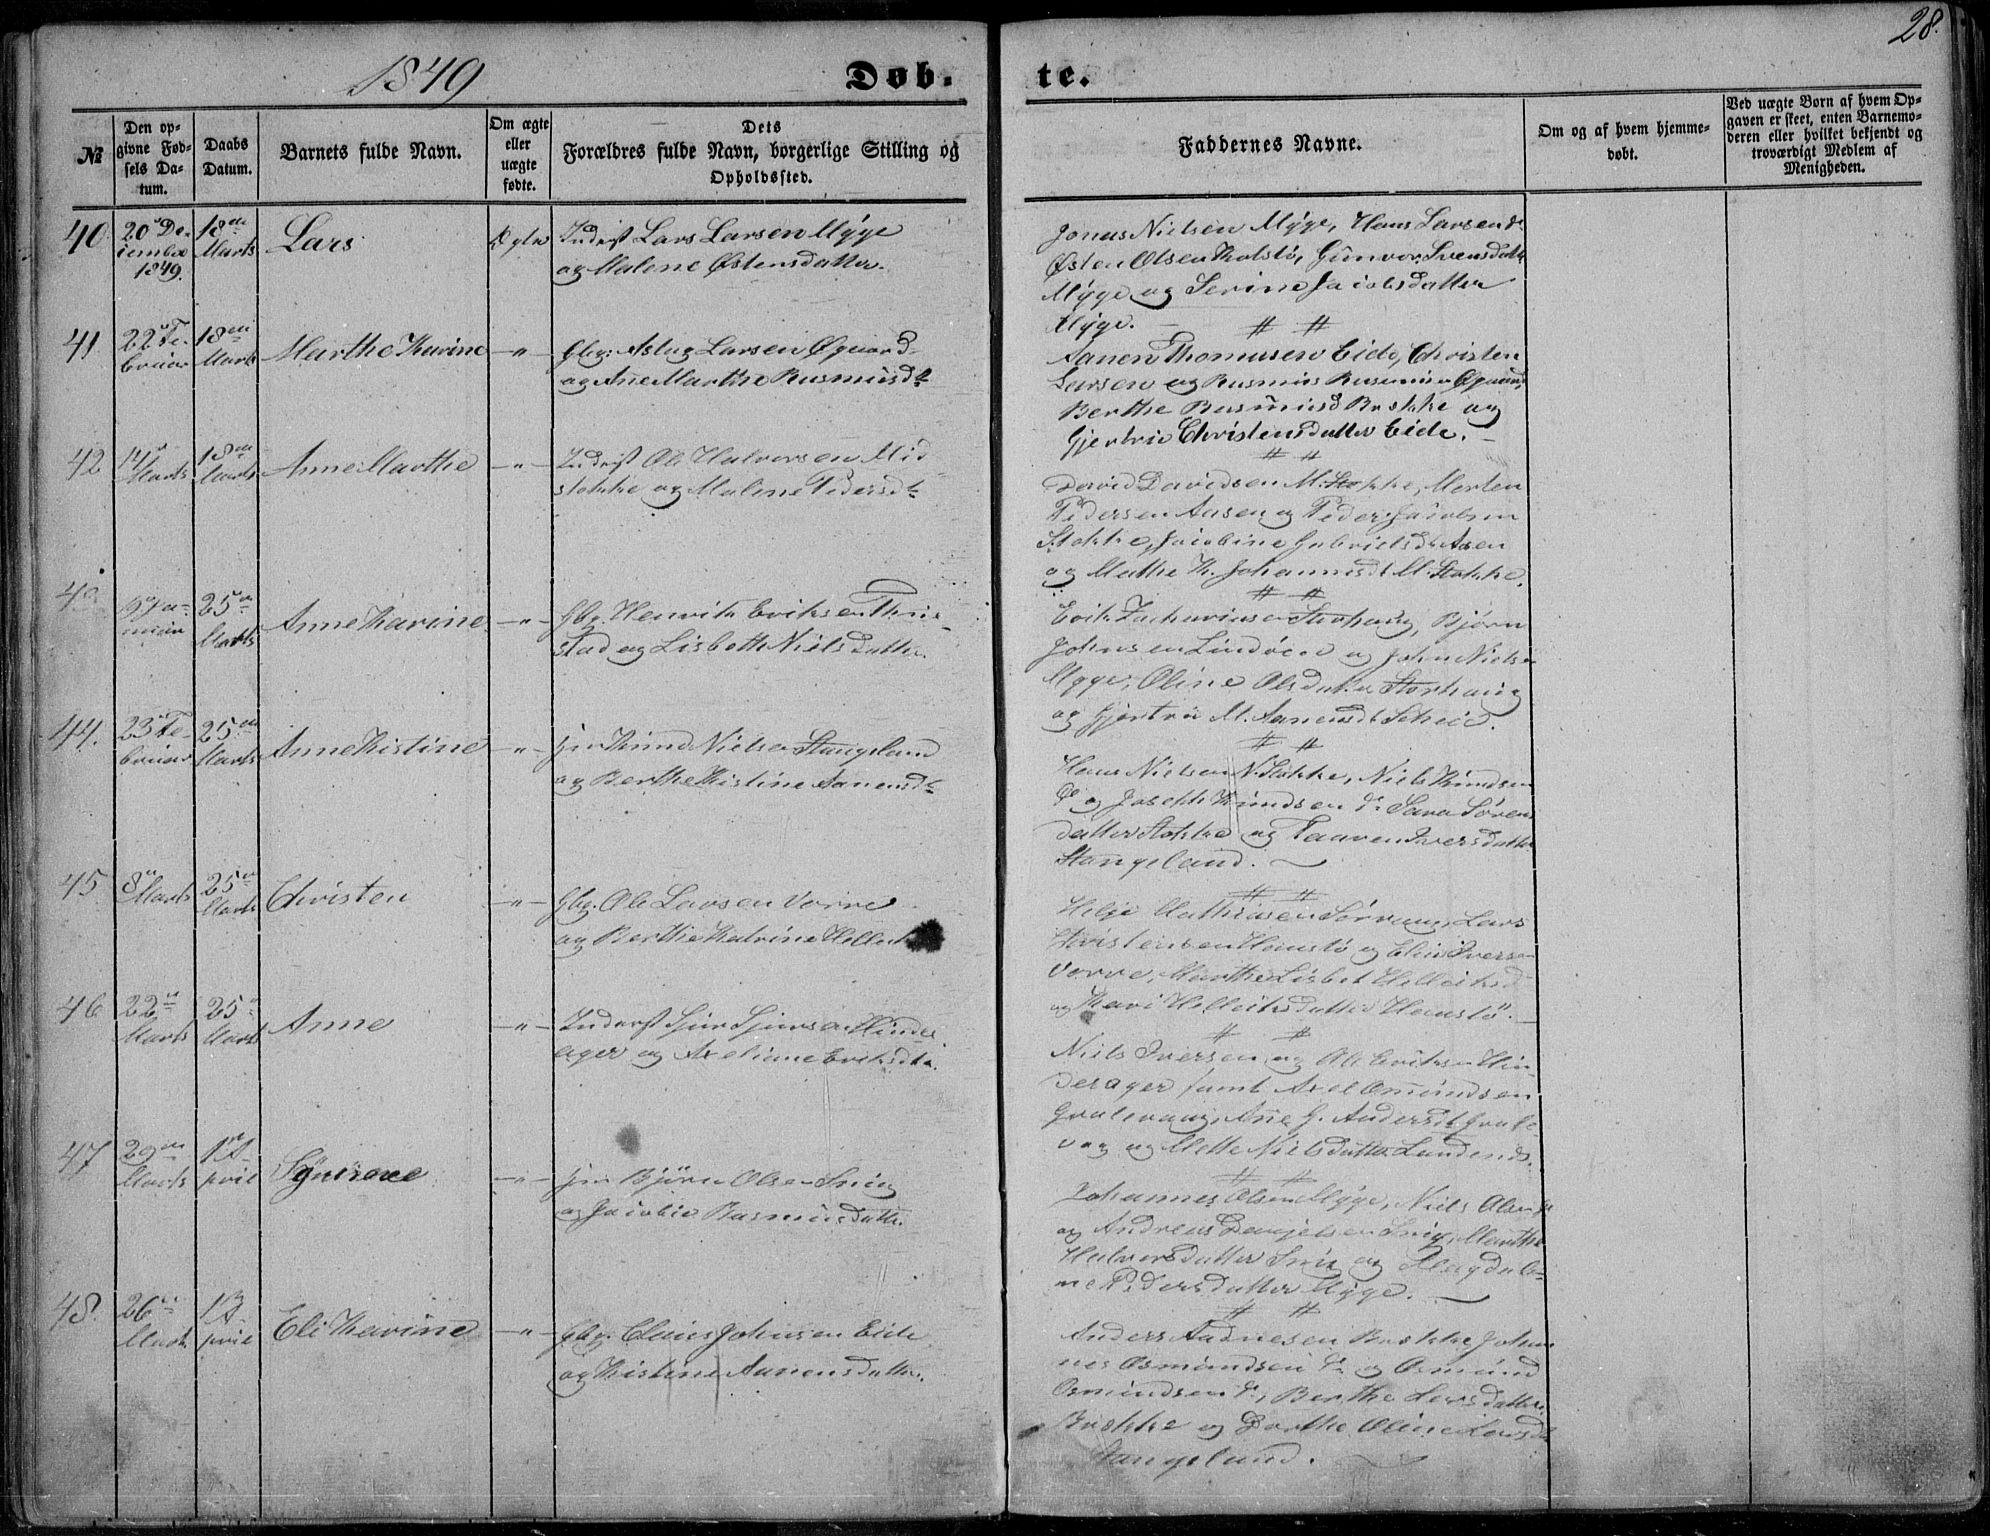 28.
1849
Døb-
te.
№
Den op-
givne Fød-
sels Da-
tum.
Daabs
Datum.
Barnets fulde Navn.
Om ægte
eller
uægte
fødte.
Dets
Forældres fulde Navn, borgerlige Stilling og
Opholdssted.
Faddernes Navne.
Om og af hvem hjemme-
døbt.
Ved uægte Børn af hvem Op-
gaven er skeet, enten Barnemo-
deren eller hvilket bekjendt og
troværdigt Medlem af
Menigheden.
40
20 De-
cember
1849.
18de
Marts
Lars
Ægte
Inderst Lars Larsen Myge
og Malene Østensdatter.
Jonas Nielsen Myge, Hans Larsen do
Østen Olsen Tholstø, Gunvor Svensdatter
Myge og Serine Jacobsdatter
Myge.
41
22 Fe-
bruar
18de
Marts
Marthe Karine
-"-
Gbr: Aslag Larsen Øgaard
og Ane Marthe Rasmusdt
Aanen Thomasen Eide, Christen
Larsen og Rasmus Rasmusen Øgaard
Berthe Rasmusd Bukke og
Gjertrud Christensdatter Eide.
42
14
Marts
18de
Marts
Anne Marthe
-"-
Inderst Ole Halvorsen Mid-
stokke og Malene Pedersdt
David Davidsen M. Stokke, Morten
Pedersen Aasen og Peder Jacobsen
Stokke, Jacobine Gabrielsdt Aasen
og Mathe K. Johannesdt M. Stokke.
25
Marts
Anne Karine
-"-
Gbr. Henrik Eriksen
stad og Lisbeth Nielsdatter.
Erik Zachariasen Storhaug, Bjørn
Johnsen og John Nielsen
Myge, Oline Olsdatter Storhaug
og Gjertru M. Aanensdt
44.
23 Fe-
bruar
25de
Marts
Anne Kistine
-"-
Knud Nielsen Stangeland
og Berthe Kistine Aanensdt
Hans Nielsen N. Stokke, Niels Knudsen
do og Joseph Knudsen do Sara Søren-
datter Stokke og Taaren Iversdatter
Stangeland.
45
8
Marts
25
Marts
Christen
-"-
Gbr. Ole Larsen Vorre
og Berthe Katrine
Helje Mathiasen Lars
Christensen Haustø og Elias Iversen
Vorre, Marthe Lisbet
og Kari Haustø.
46
22
Marts
25
Marts
Anne
-"-
Inderst Sjur Sjursen Hinde-
ager og Axeliane Eriksdt.
Niels Iversen og Ole Eriksen Hin-
derager samt Axel Omundsen
Ane G. Andersdt
og Mette Nielsdatter
47
29
Marts
1 A-
pril
-"-
Bjørn Olsen Snig
og Jacobie Rasmusdatter
Johannes Olsen Myge, Niels Olsen
og Andreas Danjelsen Snig, Marthe
Halvorsdatter Snig og Magdale-
ne Pedersdatter Myge.
48.
26
Marts
1 A-
pril
Eli Karine
-"-
Gbr. Claus Johnsen Eide
og Kistine Aanensdatter.
Anders Aadnesen Bukke Johan-
nes Osmundsen do og Osmund
Osmundsen do, Berthe Larsdatter
Bukke og Dorthe Oline Larsdt
Stangeland.